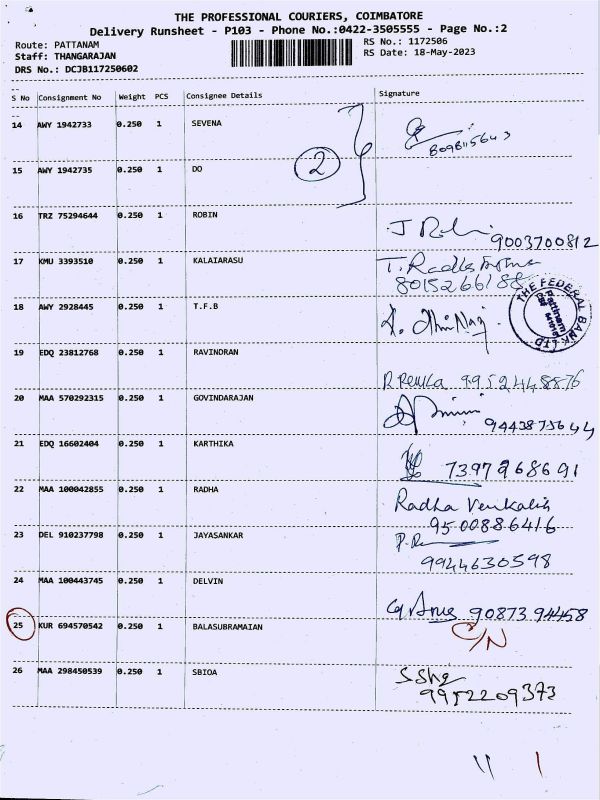 THE PROFESSIONAL COURIERS, COIMBATORE
Delivery Runsheet - P103 - Phone No.:0422-3505555 - Page No.:2
Route: PATTANAM
RS No.: 1172506
Staff: THANGARAJAN
RS Date: 18-May-2023
DRS No.: DCJB117250602
S No Consignment No Weight PCS Consignee Details Signature
14 AWY 1942733 0.250 1 SEVENA
2
15 AWY 1942735 0.250 1 DO
16 TRZ 75294644 0.250 1 ROBIN
9003700812
17 KMU 3393510 0.250 1 KALAIARASU
T. Radha
8015266188
18 AWY 2928445 0.250 1 T.F.B
THE FEDERAL BANK LTD
19 EDQ 23812768 0.250 1 RAVINDRAN
R Renuka 9952448876
20 MAA 570292315 0.250 1 GOVINDARAJAN
9443875644
21 EDQ 16602404 0.250 1 KARTHIKA
7397968691
22 MAA 100042855 0.250 1 RADHA Radha
9500886416
23 DEL 910237798 0.250 1 JAYASANKAR
9944630598
24 MAA 100443745 0.250 1 DELVIN
90873 94458
25 KUR 694570542 0.250 1 BALASUBRAMAIAN C/N
26 MAA 298450539 0.250 1 SBIOA
9952209373